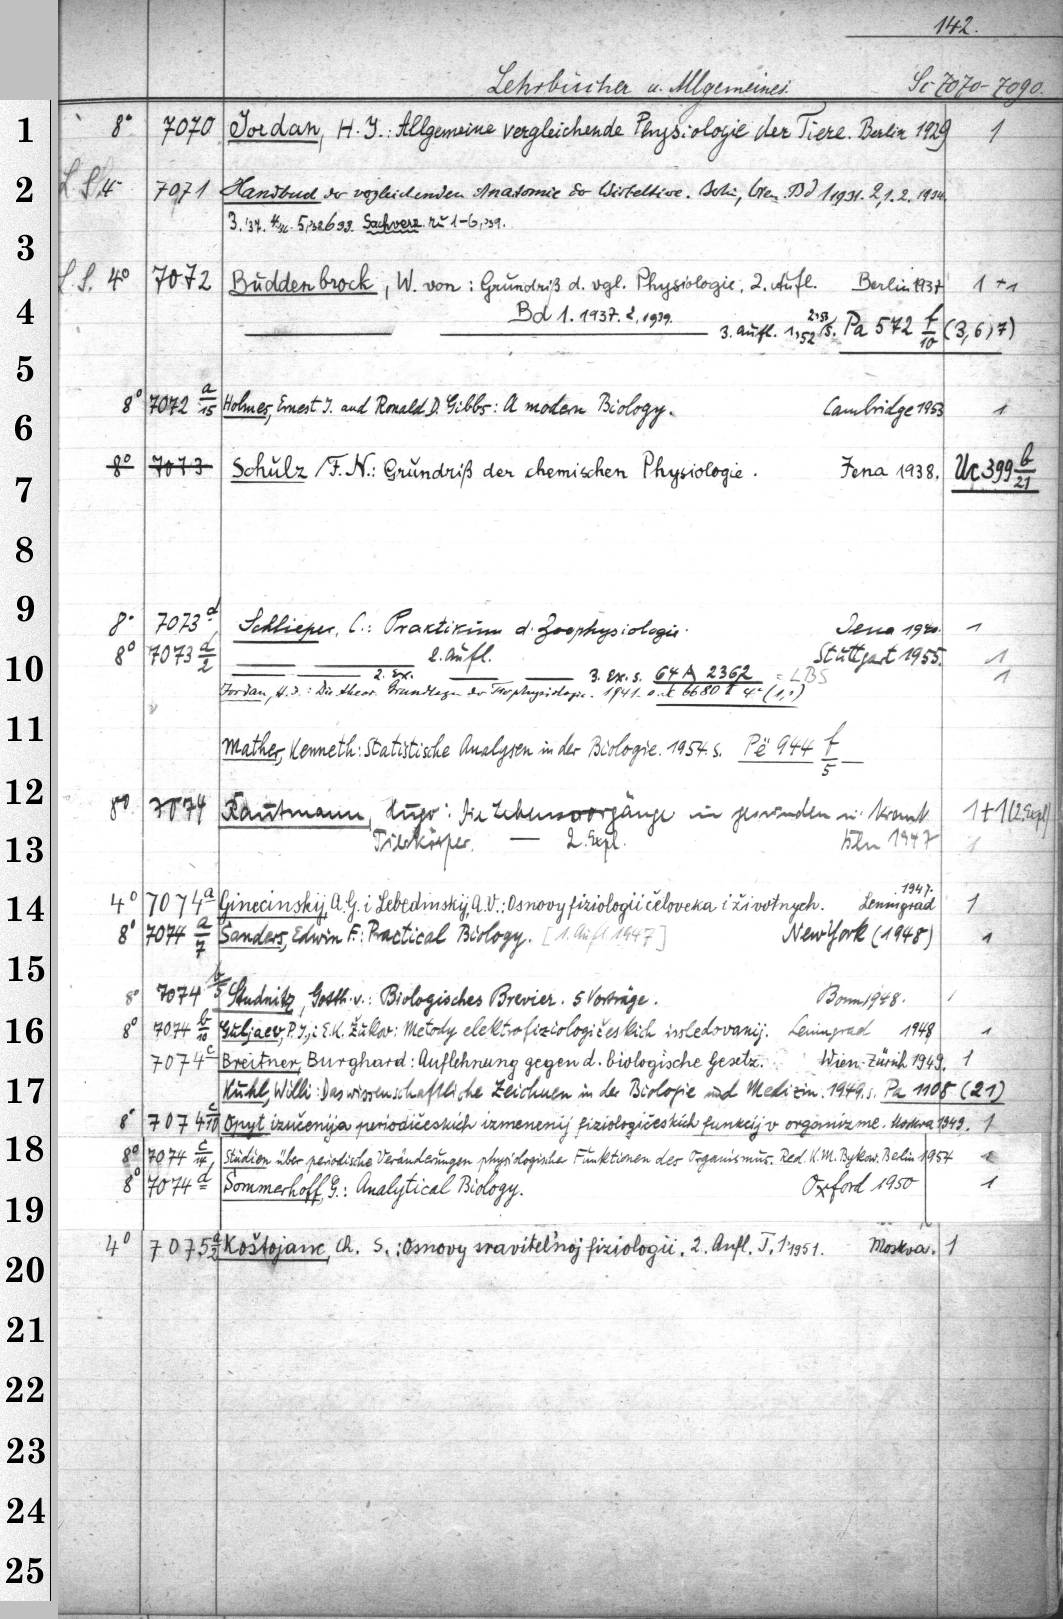 142.
Lehrbücher u. Allgemeines. Sc 7070-7090.
1 8° 7070 Jordan, H. J.: Allgemeine vergleichende Physiologie der Tiere. Berlin 1929 1
2 L S 4° 7071 Handbuch der vergleichenden Anatomie der Wirbeltiere. Berlin, Wien. Bd 1 1931. 2,1.2. 1934.
3. '37. 4. 5, 6 Sachverz. zu 1-6, '39.
3
L. S. 4° 7072 Buddenbrock, W. von: Grundriß d. vgl. Physiologie. 2. Aufl. Berlin 1937 1 + 1
4 Bd 1. 1937. 2, 1939.
3. Aufl. 1, 52 2, 53 s. Pa 572 f/10 (3,6,7)
5
8° 7072 a/15 Holmes, Ernest J. and Ronald D. Gibbs: A modern Biology. Cambridge 1953 1
6
8° 7073 Schulz, F. N.: Grundriß der chemischen Physiologie. Jena 1938. Uc 399 b/21
7
8
9 8° 7073 d Schlieper, C.: Praktikum d. Zoophysiologie. Jena 1940. 1
10 8° 7073 d/2 2. Aufl. Stuttgart 1955. 1
2. Ex. 3. Ex. s. 64 A 2362 = LBS 1
Jordan, H. J.: Die theor. Grundlagen der Tierphysiologie. 1941. 6680 4° (1,1)
11 Mather, Kenneth: Statistische Analysen in der Biologie. 1954. s. Pë 944 f/5
12 8° 7074 Kautzmann, Hugo: Die Lebensvorgänge im gesunden u. krank. 1+1 (2. Expl)
13 Tierkörper. — 2. Expl. Kln 1947 1
14 4° 7074 a Ginecinskij, A. G. i Lebedinskij, A. V.: Osnovy fiziologii čeloveka i životnych. Leningrad 1947. 1
8° 7074 a/7 Sanders, Edwin F: Practical Biology. [1. Aufl. 1947] New York (1948) 1
15
8° 7074 b/5 Studnitz, Gotth. v.: Biologisches Brevier. 5 Vorträge. Bonn 1948. 1
16 8° 7074 b/10 Guljaev, P. I., i E. K. Žukov: Metody elektrofiziologičeskich issledovanij. Leningrad 1948 1
7074 c Breitner, Burghard: Auflehnung gegen d. biologische Gesetz. Wien-Zürich 1949. 1
17 Kuhl, Willi: Das wissenschaftliche Zeichnen in der Biologie und Medizin. 1949. s. Pa 1108 (21)
8° 7074 c/10 Opyt izučenija periodičeskich izmenenij fiziologičeskich funkcij v organizme. Moskva 1949. 1
18 8° 7074 c/14 Studien über periodische Veränderungen physiologischer Funktionen des Organismus. Red. K. M. Bykow. Berlin 1954 1
8° 7074 d Sommerhoff, G.: Analytical Biology. Oxford 1950 1
19
4° 7075 a/2 Koštojanc, Ch. S.: Osnovy sravitel'noj fiziologii. 2. Aufl. T. 1 1951. Moskva. 1
20
21
22
23
24
25